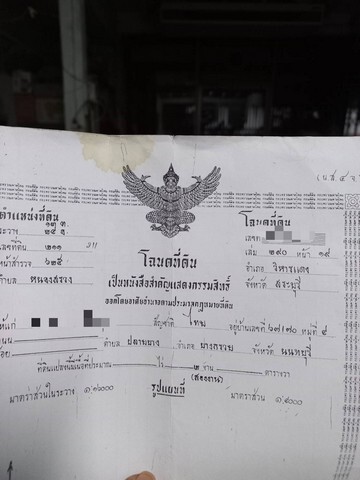 (น.ส. ๔ จ.)
ตำแหน่งที่ดิน
โฉนดที่ดิน
ระวาง
เลขที่
เลขที่ดิน ๒๑๑
เล่ม ๒๙๐ หน้า ๑๙
หน้าสำรวจ ๖๒๕
โฉนดที่ดิน
อำเภอ วิหารแดง
ตำบล หนองสรวง
เป็นหนังสือสำคัญแสดงกรรมสิทธิ์
จังหวัด สระบุรี
ออกโดยอาศัยอำนาจตามประมวลกฎหมายที่ดิน
สัญชาติ ไทย อยู่บ้านเลขที่ ๖๗/๗๐ หมู่ที่ ๔
ถนน ตำบล ปลายบาง อำเภอ บางกรวย จังหวัด นนทบุรี
ที่ดินแปลงนี้มีเนื้อที่ประมาณ ไร่ ๒ งาน ตารางวา
(สองงาน)
มาตราส่วนในระวาง ๑:๔๐๐๐
รูปแผนที่
มาตราส่วน ๑:๔๐๐๐